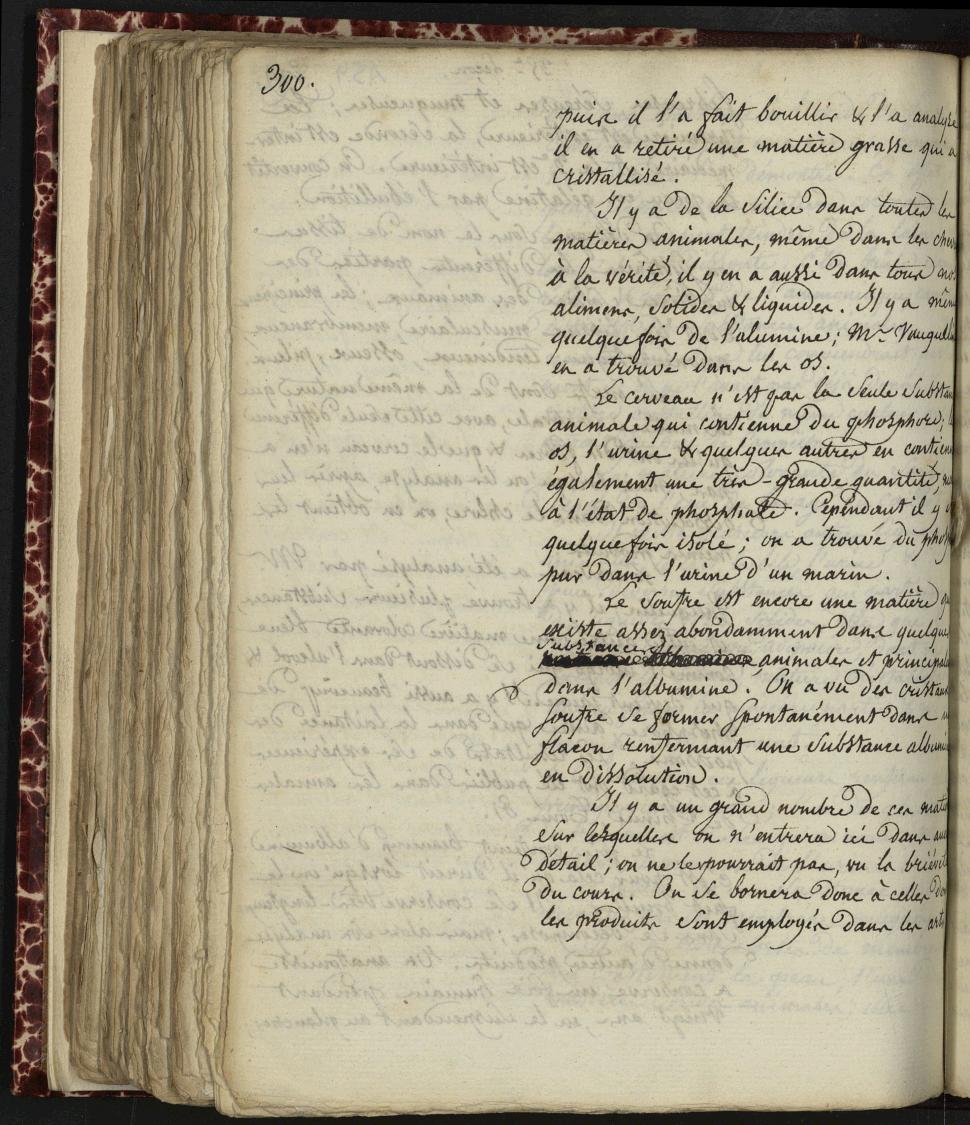 300.
puis il l'a fait bouillir & l'a analysé
il en a retiré une matière grasse qui a
cristallisé.
Il y a de la Silice dans toutes les
matières animales, même dans les
à la vérité, il y en a aussi dans tous
alimens, solides & liquides. Il y a mêm
quelquefois de l'alumine; Mr. Vauquel
en a trouvé dans les os.
Le cerveau n'est pas la seule substan
animale qui contienne du phosphore;
os, l'urine & quelques autres en contien
également une très-grande quantité,
à l'état de phosphate. Cependant il y
quelquefois isolé; on a trouvé du phos
pur dans l'urine d'un marin.
Le soufre est encore une matière
existe assez abondamment dans quelque
substances animales et principale
dans l'albumine. On a vu des cristaux
soufre se former spontanément dans
flacon renfermant une substance albumi
en dissolution.
Il y a un grand nombre de ces mati
sur lesquelles on n'entrera ici dans au
détail; on ne le pourrait pas, vu la briéveté
du cours. On se bornera donc à celles do
les produits sont employés dans les arts